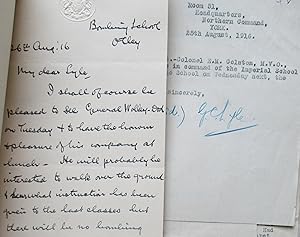 Bombing School
Otley
26th Aug: '16
My dear Lyle,
I shall of course be
pleased to see General Wolley-Dod
on Tuesday & to have the honour
& pleasure of his company at
lunch - He will probably be
interested to walk over the ground
& hear what instruction has been
given to the last classes but
there will be no bombing
Room 51,
Headquarters,
Northern Command,
YORK.
25th August, 1916.
-Colonel R.M. Colston, M.V.O.,
in command of the Imperial School
School on Wednesday next, the
sincerely,